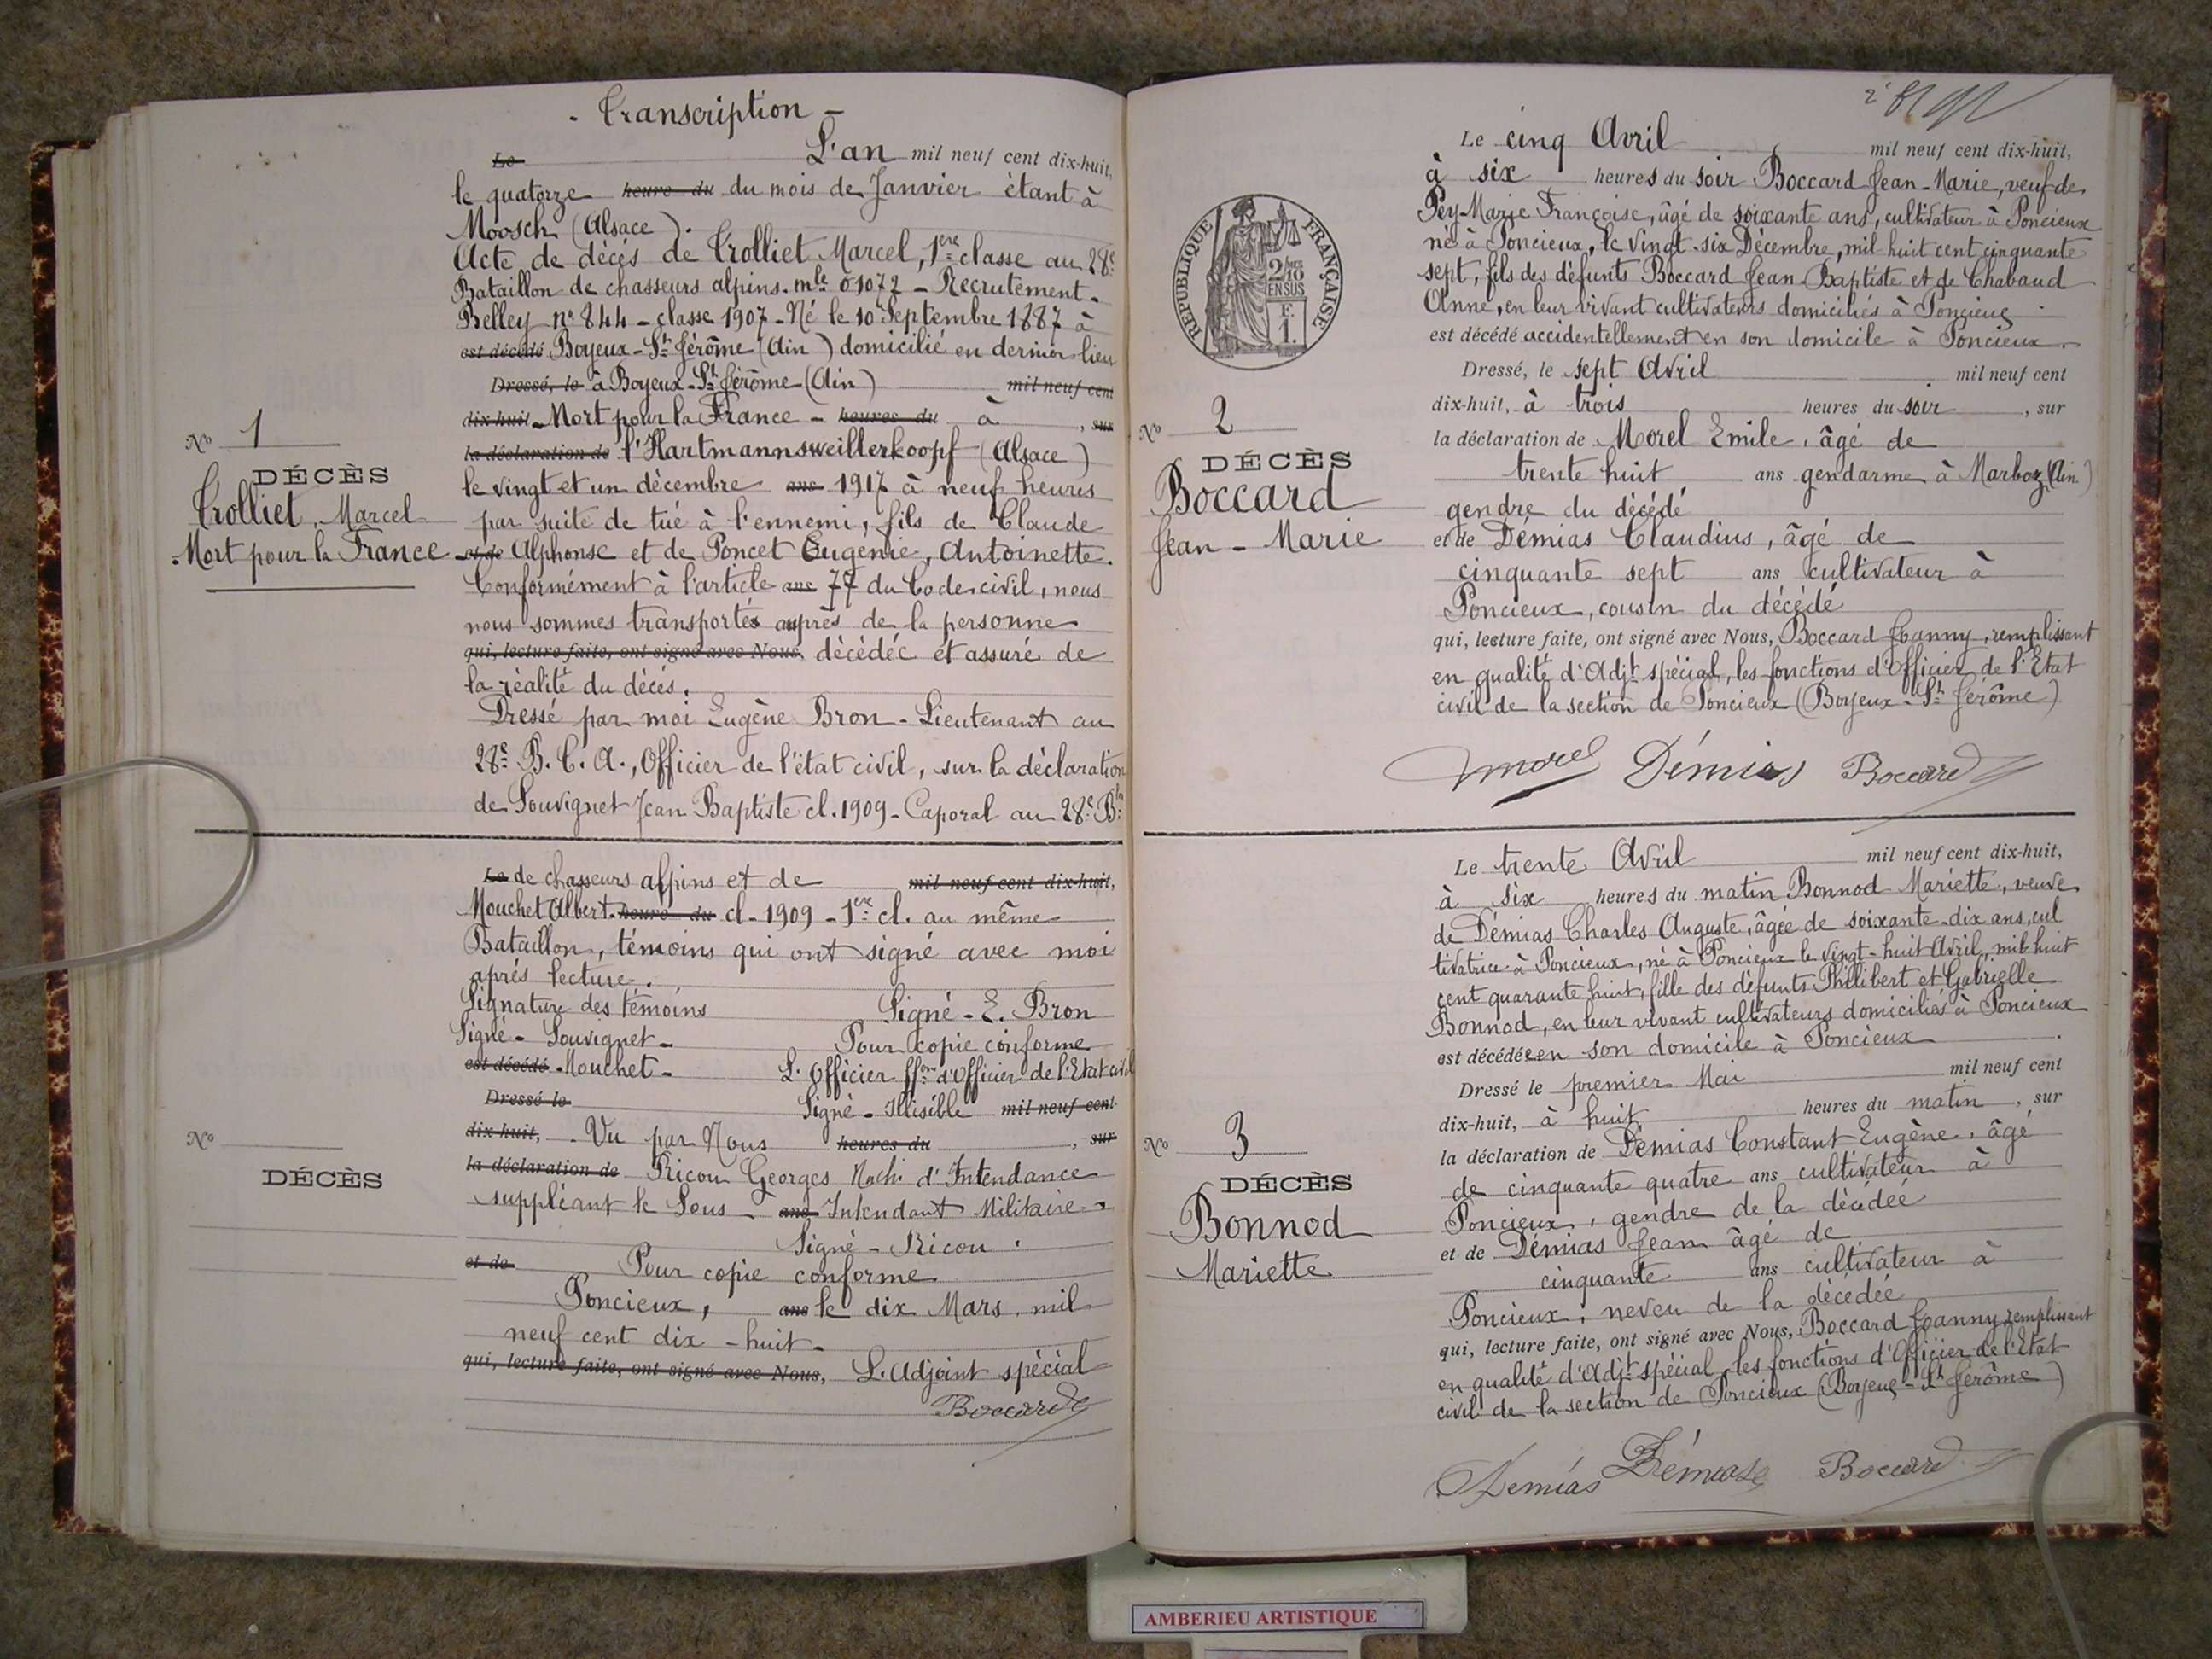 - Transcription -
Le L'an mil neuf cent dix-huit,
le quatorze heure du du mois de Janvier étant à
Moosch (Alsace).
Acte de décés de Trolliet Marcel, 1ere classe au 28e
Bataillon de chasseurs alpins. mle 01072 - Recrutement.
Belley n° 844 - classe 1907 - Né le 10 Septembre 1887 à
est décédé Boyeux-St Jérôme (Ain) domicilié en dernier lieu
Dressé, le à Boyeux-St Jérôme (Ain) mil neuf cent
dix-huit - Mort pour la France - heures du à , sur
la déclaration de l'Hartmannsweillerkoopf (Alsace)
le vingt et un décembre ans 1917 à neuf heures
par suite de tué à l'ennemi, fils de Claude
et de Alphonse et de Poncet Eugénie, Antoinette.
Conformément à l'article ans 77 du Code civil, nous
nous sommes transportés auprès de la personne
qui, lecture faite, ont signé avec Nous, décédée et assuré de
la réalité du décés.
Dressé par moi Eugène Bron - Lieutenant au
28e B. C. A., Officier de l'état civil, sur la déclaration
de Souvignet Jean Baptiste cl. 1909 - Caporal au 28e Bon
N° 1
DÉCÈS
Trolliet, Marcel
Mort pour la France
Le de chasseurs alpins et de mil neuf cent dix-huit,
Mouchet Albert. heure du cl - 1909 - 1ere cl. au même
Bataillon, témoins qui ont signé avec moi
aprés lecture.
Signature des témoins Signé - E. Bron
Signé - Souvignet - Pour copie conforme
est décédé - Mouchet - L'Officier ffons d'Officier de l'Etat civil
Dressé le Signé - Illisible mil neuf cent
dix-huit, - Vu par Nous heures du , sur
la déclaration de Ricou Georges d'Intendance
suppléant le Sous - ans Intendant Militaire -
Signé - Ricou.
et de Pour copie conforme
Poncieux, ans le dix Mars mil
neuf cent dix - huit -
qui, lecture faite, ont signé avec Nous, L'Adjoint spécial
Boccard
N°
DÉCÈS
2
Le cinq Avril mil neuf cent dix-huit,
à six heures du soir Boccard Jean-Marie, veuf de
Pey Marie Françoise, âgé de soixante ans, cultivateur à Poncieux
né à Poncieux, le vingt-six Décembre, mil huit cent cinquante
sept, fils des défunts Boccard Jean Baptiste et de Chabaud
Anne, en leur vivant cultivateurs domiciliés à Poncieux
est décédé accidentellement en son domicile à Poncieux.
Dressé, le sept Avril mil neuf cent
dix-huit, à trois heures du soir , sur
la déclaration de Morel Emile, âgé de
trente huit ans gendarme à Marboz (Ain)
gendre du décédé
et de Démias Claudius, âgé de
cinquante sept ans cultivateur à
Poncieux, cousin du décédé
qui, lecture faite, ont signé avec Nous, Boccard Joanny, remplissant
en qualité d'Adjt spécial, les fonctions d'Officier de l'Etat
civil de la section de Poncieux (Boyeux-St Jérôme)
Morel Démias Boccard
RÉPUBLIQUE FRANÇAISE
2/10
EN SUS
F.
1.
N° 2
DÉCÈS
Boccard
Jean - Marie
Le trente Avril mil neuf cent dix-huit,
à six heures du matin Bonnod Mariette, veuve
de Démias Charles Auguste, âgée de soixante-dix ans, cul
tivatrice à Poncieux, né à Poncieux le vingt-huit Avril, mil huit
cent quarante huit, fille des défunts Philibert et Gabrielle
Bonnod, en leur vivant cultivateurs domiciliés à Poncieux
est décédée en son domicile à Poncieux .
Dressé le premier Mai mil neuf cent
dix-huit, à huit heures du matin , sur
la déclaration de Démias Constant Eugène, âgé
de cinquante quatre ans cultivateur à
Poncieux, gendre de la décédée
et de Démias Jean âgé de
cinquante ans cultivateur à
Poncieux, neveu de la décédée
qui, lecture faite, ont signé avec Nous, Boccard Joanny remplissant
en qualité d'Adjt spécial les fonctions d'Officier de l'Etat
civil de la section de Poncieux (Boyeux-St Jérôme)
Demias Démias Boccard
N° 3
DÉCÈS
Bonnod
Mariette
AMBERIEU ARTISTIQUE